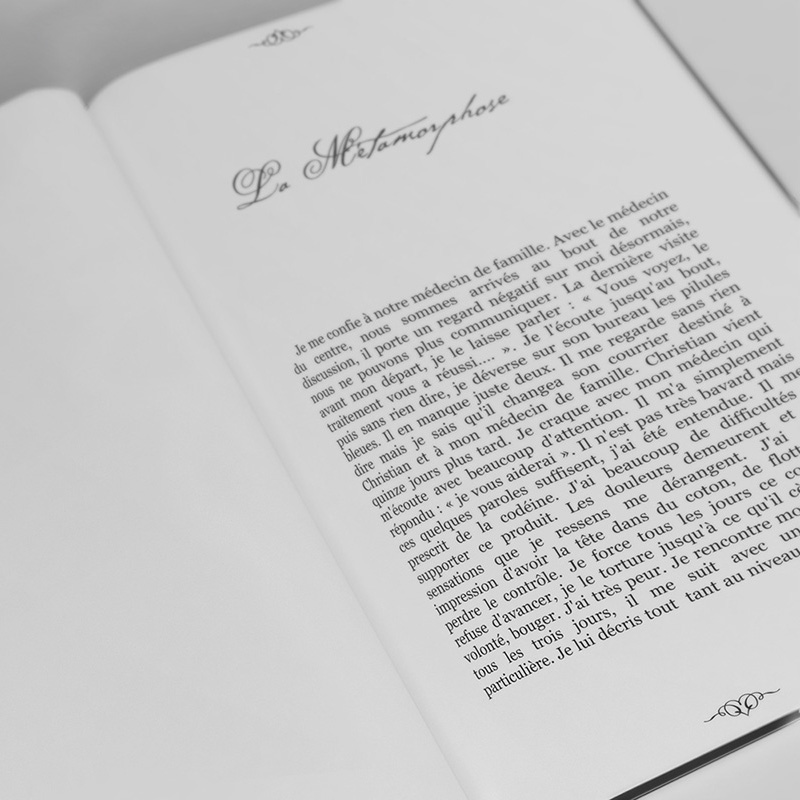 La Metamorphose
Je me confie à notre médecin de famille. Avec le médecin
du centre, nous sommes arrivés au bout de notre
discussion, il porte un regard négatif sur moi désormais,
nous ne pouvons plus communiquer. La dernière visite
avant mon départ, je le laisse parler : « Vous voyez, le
traitement vous a réussi.... ». Je l'écoute jusqu'au bout,
puis sans rien dire, je déverse sur son bureau les pilules
bleues. Il en manque juste deux. Il me regarde sans rien
dire mais je sais qu'il changea son courrier destiné à
Christian et à mon médecin de famille. Christian vient
quinze jours plus tard. Je craque avec mon médecin qui
m'écoute avec beaucoup d'attention. Il m'a simplement
répondu : « je vous aiderai ». Il n'est pas très bavard mais
ces quelques paroles suffisent, j'ai été entendue. Il me
prescrit de la codéine. J'ai beaucoup de difficultés
supporter ce produit. Les douleurs demeurent et
sensations que je ressens me dérangent. J'ai
impression d'avoir la tête dans du coton, de
perdre le contrôle. Je force tous les jours ce
refuse d'avancer, je le torture jusqu'à ce qu'il
volonté, bouger. J'ai très peur. Je rencontre
tous les trois jours, il me suit avec
particulière. Je lui décris tout tant au niveau